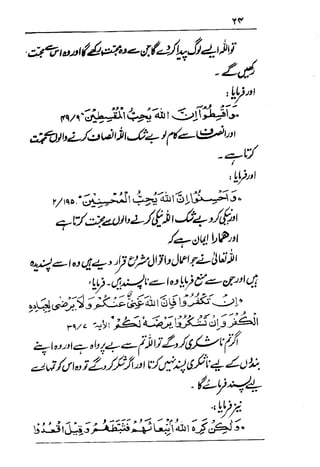 ۲۴
تو اللہ ایسے لوگ پیدا کر دے گا جن سے وہ محبت رکھے گا اور وہ اس سے محبت
رکھیں گے ۔
اور فرمایا :
• وَاَقْسِطُوْا اِنَّ اللهَ يُحِبُّ الْمُقْسِطِيْنَ ۴۹/۹
اور انصاف سے کام لو بے شک اللہ انصاف کرنے والوں سے محبت
کرتا ہے ۔
اور فرمایا :
• وَاَحْسِنُوْا اِنَّ اللهَ يُحِبُّ الْمُحْسِنِيْنَ ۲/۱۹۵
اور نیکی کرو بے شک اللہ نیکی کرنے والوں سے محبت کرتا ہے
اور ہمارا ایمان ہے کہ
اللہ تعالیٰ نے جو اعمال و اقوال مشروع قرار دیے ہیں وہ اسے پسندیدہ
ہیں اور جن سے منع فرمایا وہ اسے ناپسند ہیں ۔ فرمایا :
• اِنْ تَكْفُرُوْا فَاِنَّ اللهَ غَنِيٌّ عَنْكُمْ وَلَا يَرْضٰى لِعِبَادِهِ
الْكُفْرَ وَاِنْ تَشْكُرُوْا يَرْضَهُ لَكُمْ الآية ۳۹/۷
اگر تم ناشکری کرو گے تو اللہ تم سے بے پرواہ ہے اور وہ اپنے
بندوں کے لیے ناشکری پسند نہیں کرتا اور اگر شکر کرو گے تو وہ اس کو تمہارے
لیے پسند فرمائے گا ۔
نیز فرمایا :
• وَلٰكِنْ كَرِهَ اللهُ انْۢبِعَاثَهُمْ فَثَبَّطَهُمْ وَقِيْلَ اقْعُدُوْا